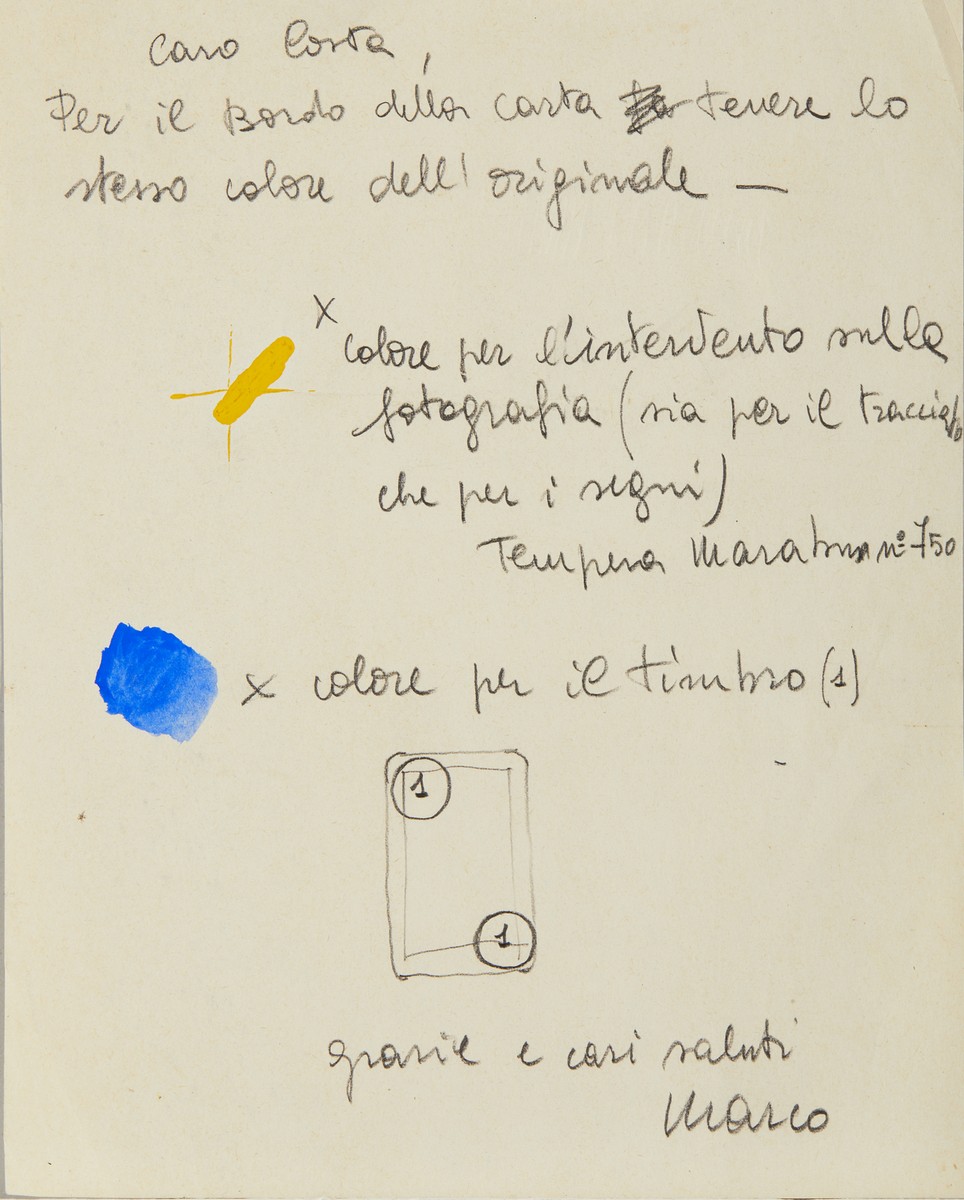 Caro Costa,
Per il Bordo della carta tenere lo
stesso colore dell'originale —
x colore per l'intervento sulla
fotografia (sia per il tracciato
che per i segni)
Tempera Marabu nº 750
x colore per il timbro (1)
1
1
grazie e cari saluti
Marco